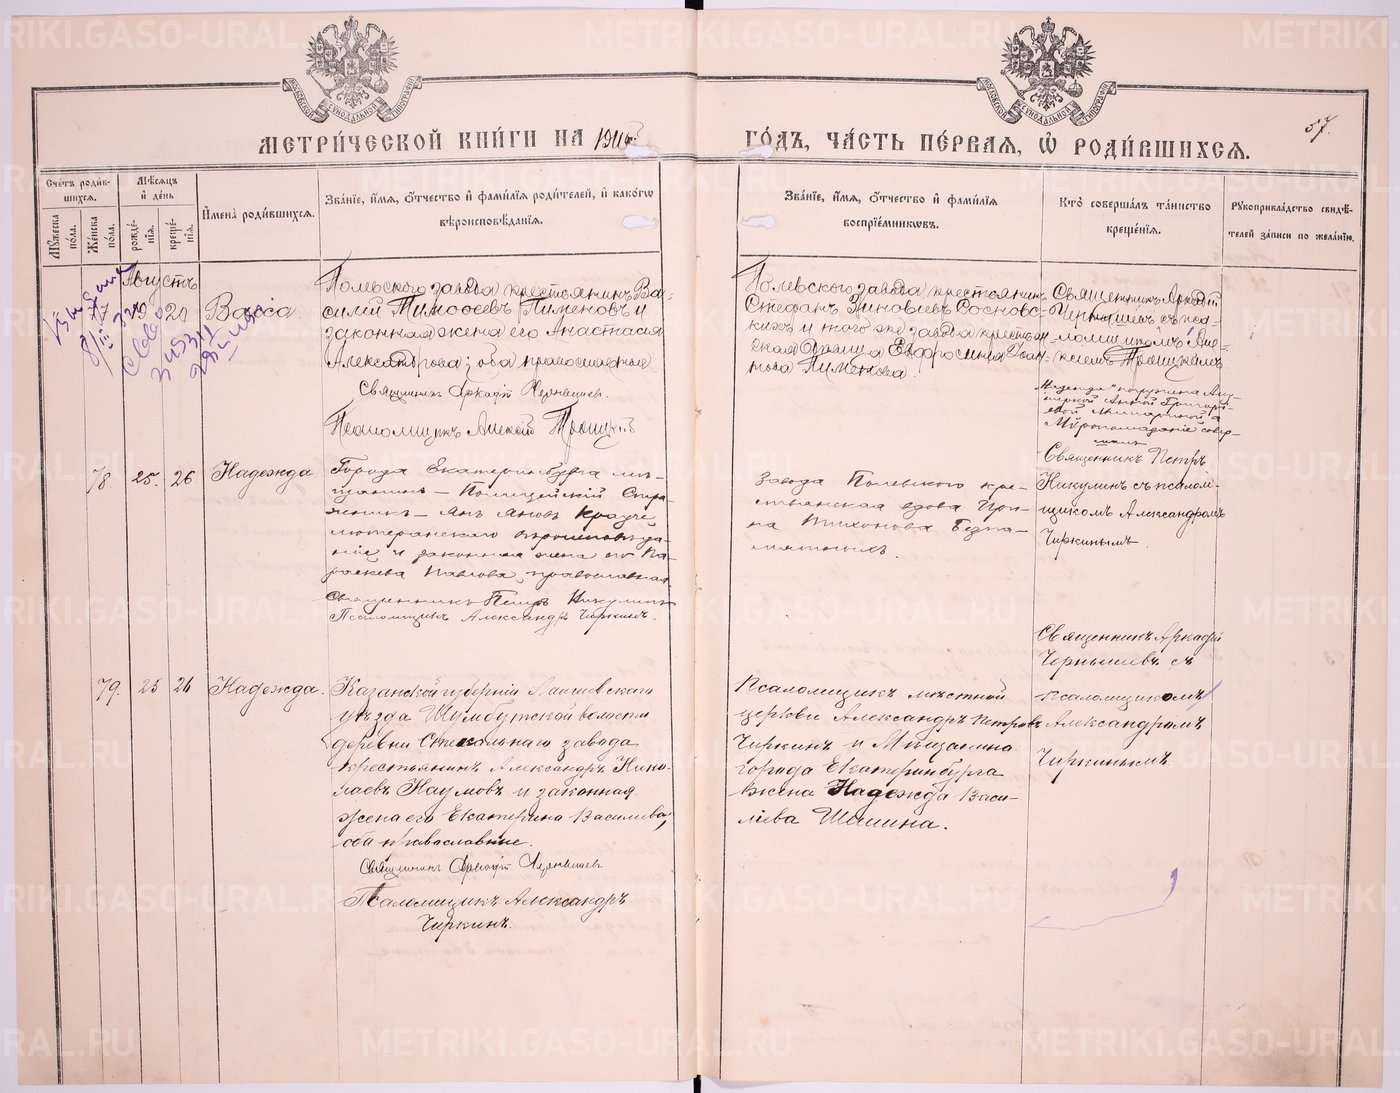 МЕТРИ́ЧЕСКОЙ КНИ́ГИ НА 191
ГО́ДЪ, ЧА́СТЬ ПЕ́РВАЯ, Ѽ РОДИ́ВШИХСЯ.
57.
Сче́тъ роди́в-
шихся.
Мꙋ́жеска по́ла.
Же́нска по́ла.
Мѣ́сяцъ
и҆ де́нь
рожде́нїѧ.
креще́нїѧ.
И҆мена̀ роди́вшихся.
Зва́нїе, и҆́мѧ, ѻ҆́тчество и҆ фами́лїѧ роди́телей, и҆ како́гѡ
вѣроисповѣ́данїѧ.
Зва́нїе, и҆́мѧ, ѻ҆́тчество и҆ фами́лїѧ
воспрїе́мникѡвъ.
Кто̀ соверша́лъ та́инство
креще́нїѧ.
Рꙋкоприкла́дство свидѣ́-
телей за́писи по жела́нїю.
Августъ
77
20
Васса.
Полевского завода крестьянинъ Ва-
силій Тимофеевъ Пименовъ и
законная жена его Анастасія
Александрова; оба православные
Священникъ Аркадій Чернышевъ.
Псаломщикъ Алексій Троицкій
Полевского завода крестьянинъ
Стефанъ Зиновіевъ Сосновс-
кихъ и того же завода крестьян-
ская дѣвица Евфросинія
Пименова.
Священникъ Аркадій
Чернышевъ съ пса-
ломщикомъ Але-
ксіемъ Троицкимъ
78.
25.
26
Надежда.
Города Екатеринбурга мѣ-
щанинъ – Полицейскій Стра-
жникъ – Янъ Яновъ
лютеранскаго вѣроисповѣда-
нія и законная жена его Па-
раскева Павлова, православная
Священникъ Петръ Никулинъ
Псаломщикъ Александръ Чиркинъ.
Завода Полевского кре-
стьянская вдова Ири-
на Тихонова Безпа-
мятныхъ.
„Надежда" погружена Аку-
шеркой Анной Григорь-
евой
Мѵропомазаніе совер-
шилъ
Священникъ Петръ
Никулинъ съ псалом-
щикомъ Александромъ
Чиркинымъ.
79.
25
26
Надежда.
Казанской губерніи Лаишевскаго
уѣзда Шумбутской волости
деревни Стекольнаго завода
крестьянинъ Александръ Нико-
лаевъ Наумовъ и законная
жена его Екатерина Васильева,
оба православные.
Священникъ Аркадій Чернышевъ
Псаломщикъ Александръ
Чиркинъ.
Псаломщикъ мѣстной
церкви Александръ Петровъ
Чиркинъ и Мѣщанина
города Екатеринбурга
жена Надежда Васи-
ліева Шишина.
Священникъ Аркадій
Чернышевъ съ
псаломщикомъ
Александромъ
Чиркинымъ
METRIKI.GASO-URAL.RU